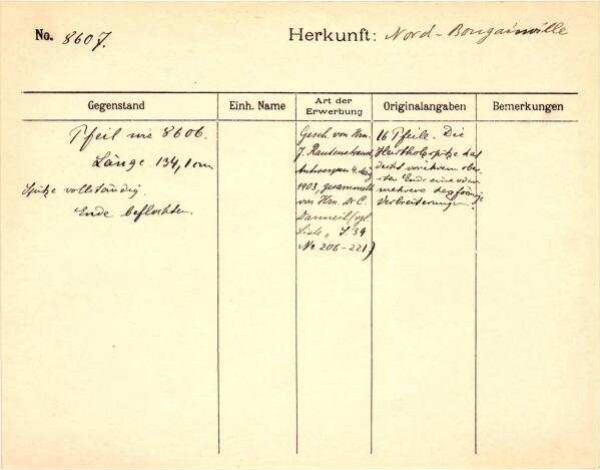 No. 8607.
Herkunft: Nord-Bougainville
Gegenstand
Einh. Name
Art der Erwerbung
Originalangaben
Bemerkungen
Pfeil wie 8606.
Länge 134,1 cm
Spitze vollständig.
Ende beflochten.
Gesch. von Hrn.
J. Rautenstrauch,
Antwerpen
1903, gesammelt
von Hrn. Dr C.
Danneil (vgl.
Liste, S. 39
No 206-221)
16 Pfeile. Die
Hartholzspitze hat
dicht vor ihrem obe-
ren Ende eine oder
mehrere
Verbreiterungen.